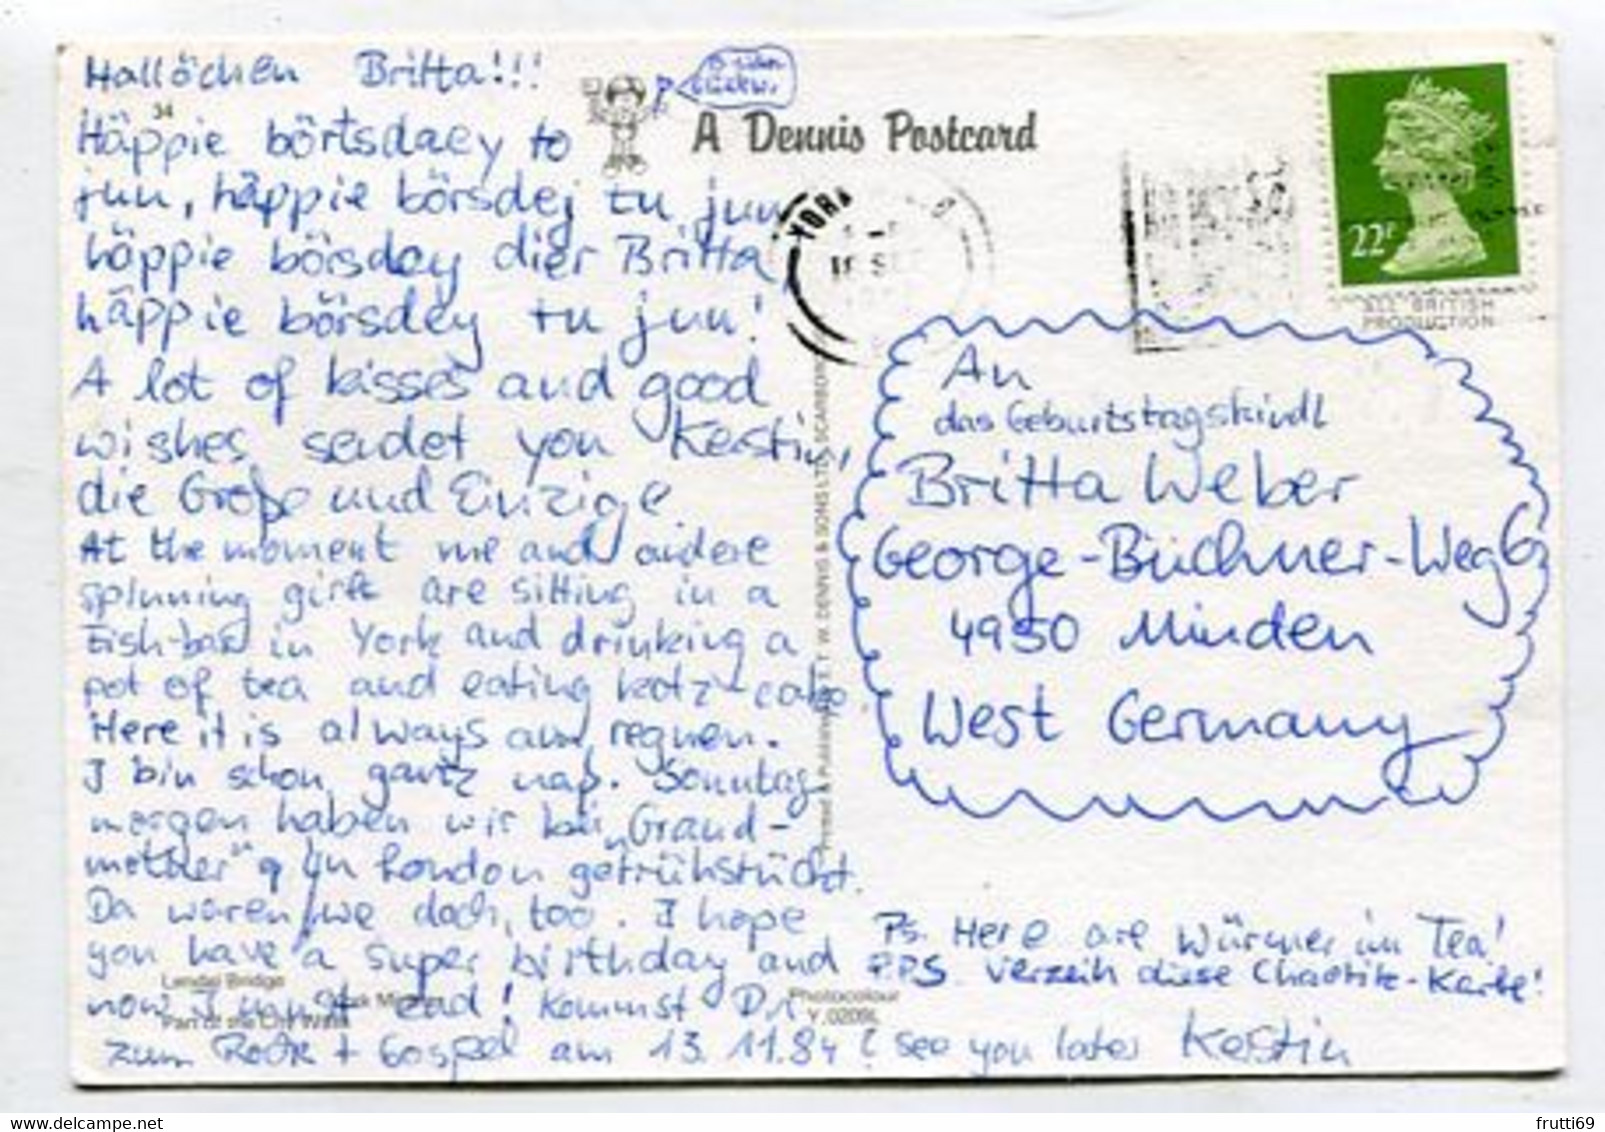 Hallöchen Britta!!!
34
Häppie börtsdaey to
jun, häppie börsdej tu jun,
häppie börsdey dier Britta,
häppie börsdey tu jun!
A lot of kisses and good
wishes sendet you Kerstin,
die Große und Einzige.
At the moment me and andere
spinning girls are sitting in a
Fish-bar in York and drinking a
pot of tea and eating kotz-cake
Here it is always am regnen.
I bin schon gantz naß. Sonntag
morgen haben wir bei "Grand-
mother" in London gefrühstückt.
Da waren we doch, too. I hope
you have a super birthday and
now I must end! Kommst Du
zum Rock + Gospel am 13.11.84? see you later Kerstin
A Dennis Postcard
YORK
22P
ALL BRITISH
PRODUCTION
An
das Geburtstagskindl
Britta Weber
George-Büchner-Weg 6
4950 Minden
West Germany
Ps. Here are Würmer im Tea!
P.P.S. Verzeih diese Chaotik-Karte!
Lendal Bridge
Part of the City Walls
Photocolour
Printed & Published by E.T.W. DENNIS & SONS LTD, SCARBOROUGH
frutti69